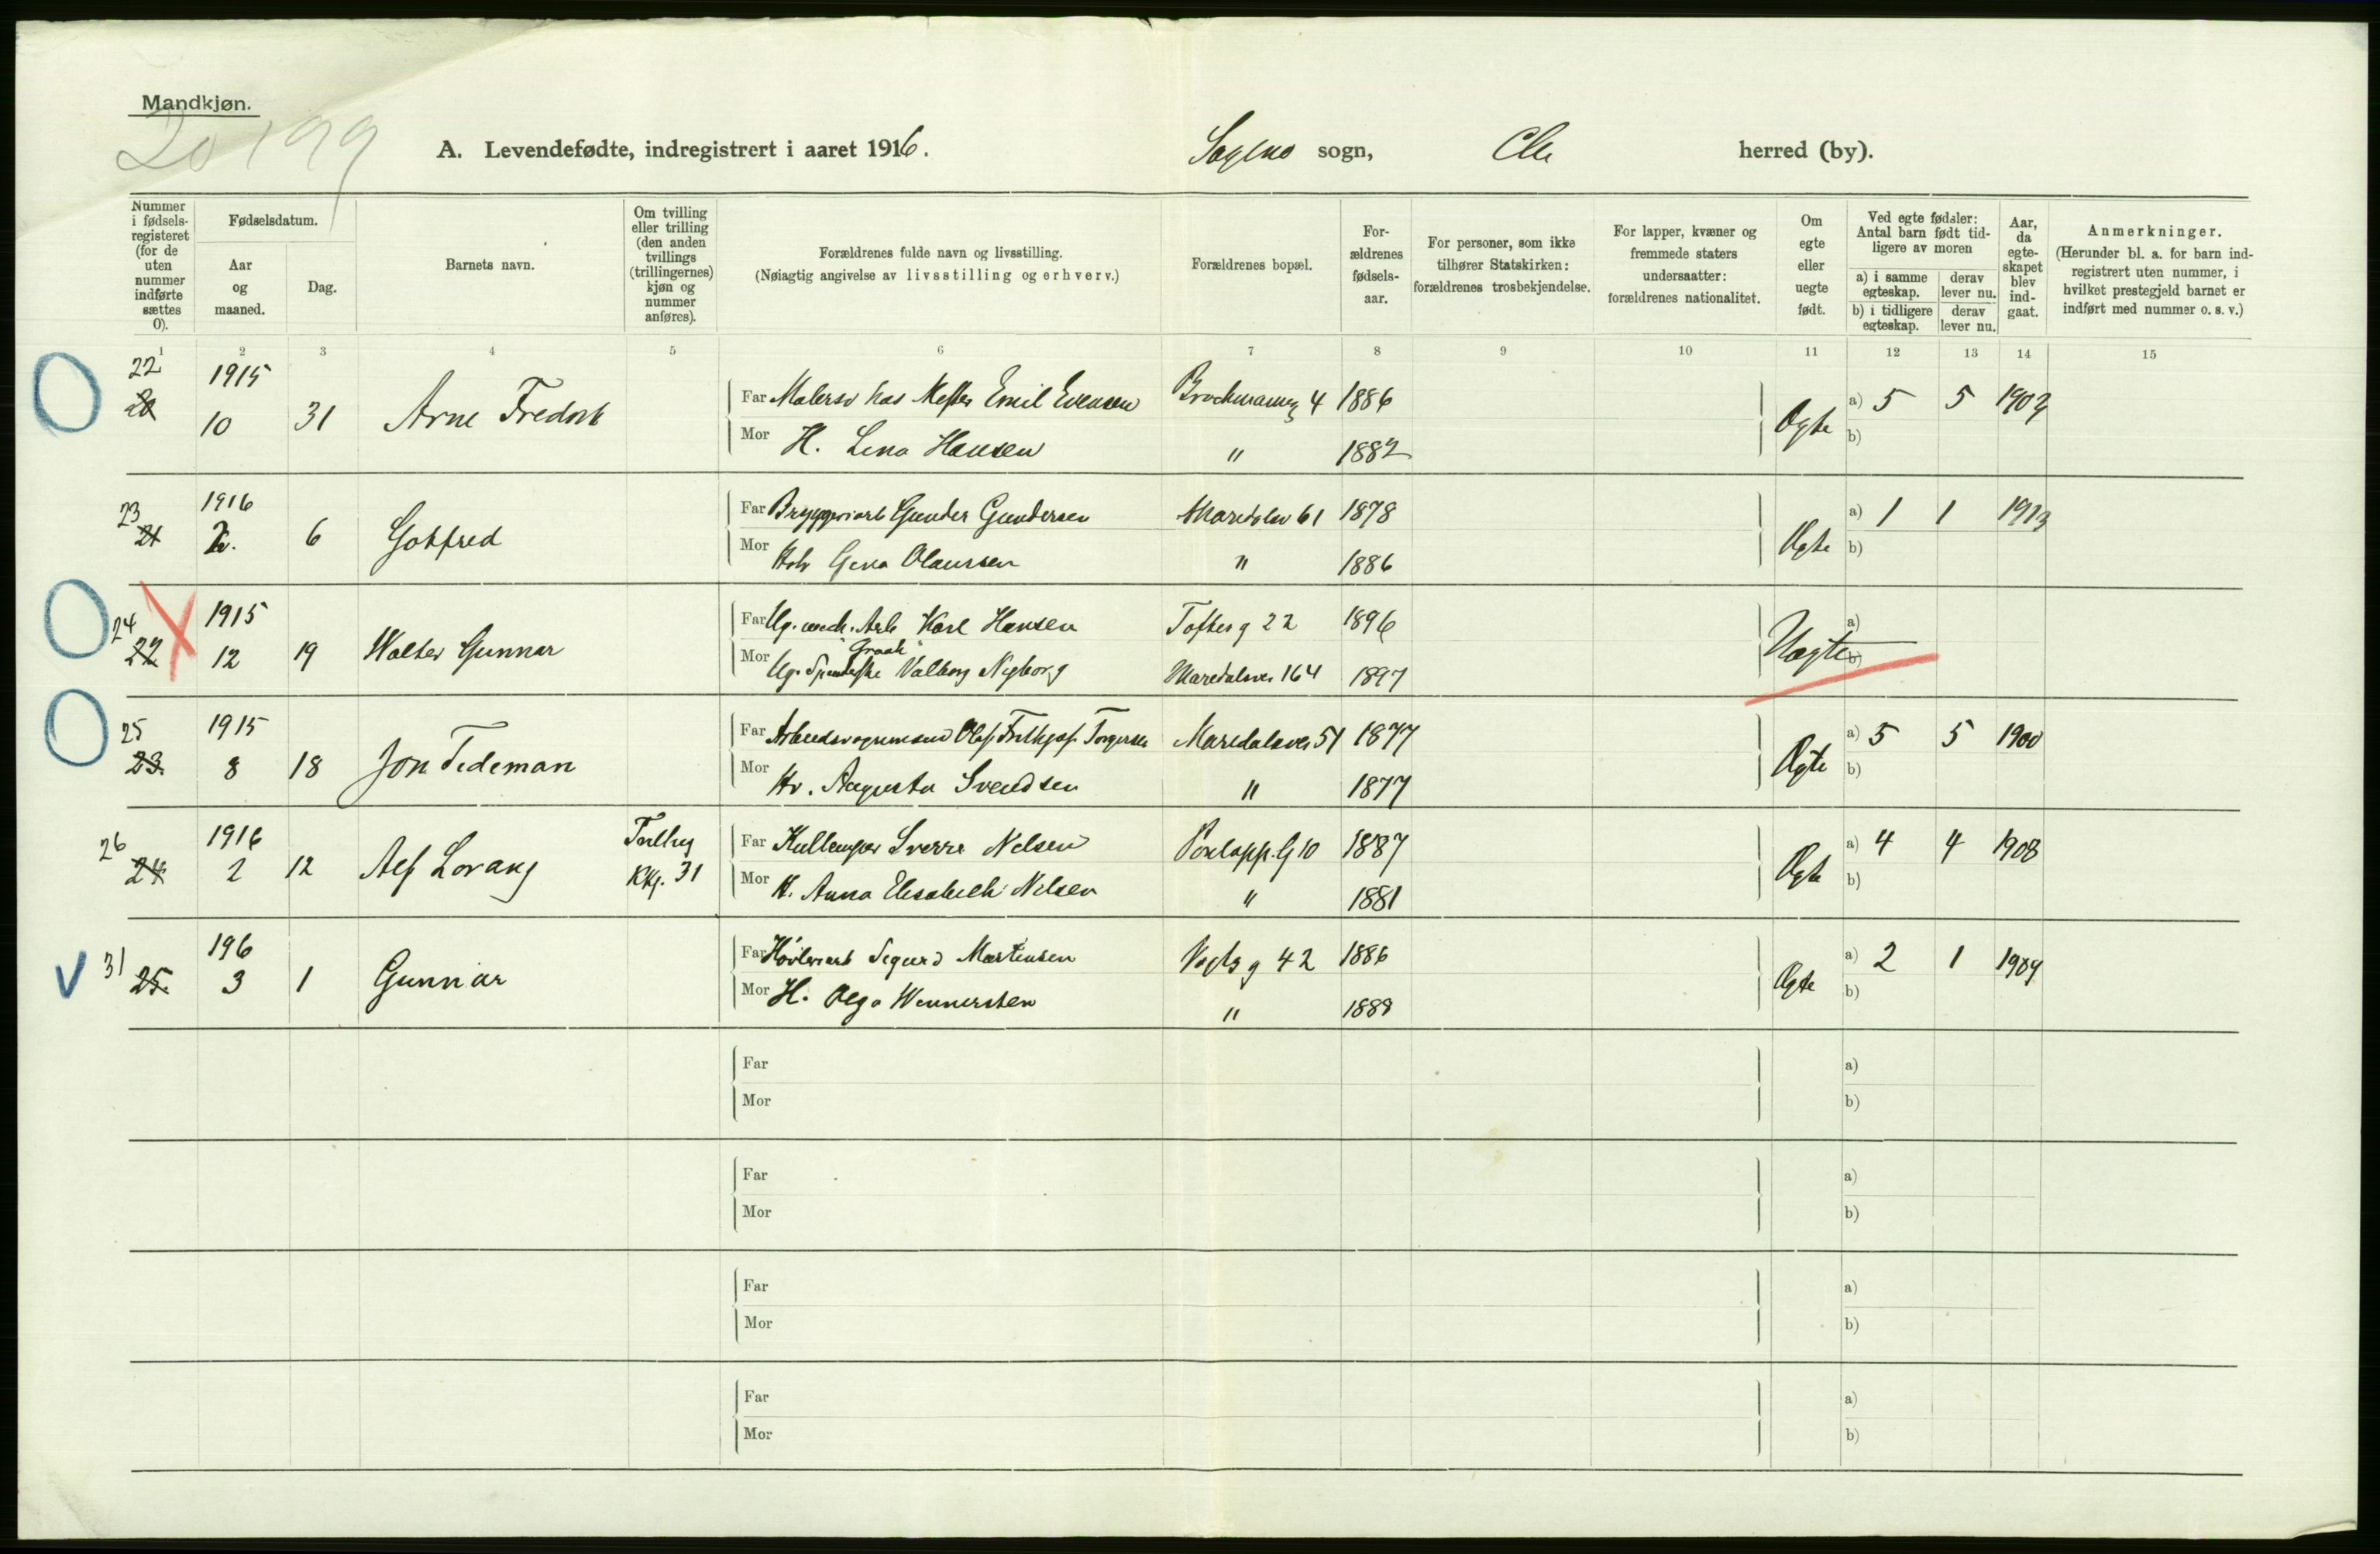 Mandkjøn.
20199
A. Levendefødte, indregistrert i aaret 1916. Sagene sogn, Chr herred (by).
Nummer i fødsels-registeret (for de uten nummer indførte sættes 0).
Fødselsdatum.
Aar og maaned.
Dag.
Barnets navn.
Om tvilling eller trilling (den anden tvillings (trillingernes) kjøn og nummer anføres).
Forældrenes fulde navn og livsstilling.
(Nøiagtig angivelse av livsstilling og erhverv.)
Forældrenes bopæl.
For-ældrenes fødsels-aar.
For personer, som ikke tilhører Statskirken: forældrenes trosbekjendelse.
For lapper, kvæner og fremmede staters undersaatter: forældrenes nationalitet.
Om egte eller uegte født.
Ved egte fødsler: Antal barn født tid-ligere av moren
a) i samme egteskap.
derav lever nu.
b) i tidligere egteskap.
derav lever nu.
Aar, da egte-skapet blev ind-gaat.
Anmerkninger.
(Herunder bl. a. for barn ind-registrert uten nummer, i hvilket prestegjeld barnet er indført med nummer o. s. v.)
1 2 3 4 5 6 7 8 9 10 11 12 13 14 15
22 20 1915 10 31 Arne Fredrik
Far Malersv hos Mester Emil Evensen Brochmannsg 4 1886
Mor H. Lena Hansen " 1882
Ægte a) 5 5 1907
b)
23 21 1916 2. 6 Gotfred
Far Bryggeriarb Gunder Gundersen Maridalsv 61 1878
Mor Hstr Gina Olaussen " 1886
Ægte a) 1 1 1913
b)
24 22 1915 12 19 Walter Gunnar
Far Ug. mek. Arb Karl Hansen Toftesg 22 1896
Graah
Mor Ug. Valborg Nyborg Maridalsvei 164 1897
Uægte a)
b)
25 23. 1915 8 18 Jon Tedeman
Far Arbeidsvognmand Olaf Frithjof Torgersen Maridalsvei 51 1877
Mor Hv. Augusta Svendsen " 1877
Ægte a) 5 5 1900
b)
26 24 1916 2 12 Alf Lorang Tvilling Kkj. 31
Far Sverre Nilsen G 10 1887
Mor H. Anna Elisabeth Nilsen " 1881
Ægte a) 4 4 1908
b)
31 25. 196 3 1 Gunnar
Far Høvleriarb Sigurd Martinsen Vogtsg 42 1886
Mor H. Olga Wennersten " 1888
Ægte a) 2 1 1909
b)
Far a)
Mor b)
Far a)
Mor b)
Far a)
Mor b)
Far a)
Mor b)